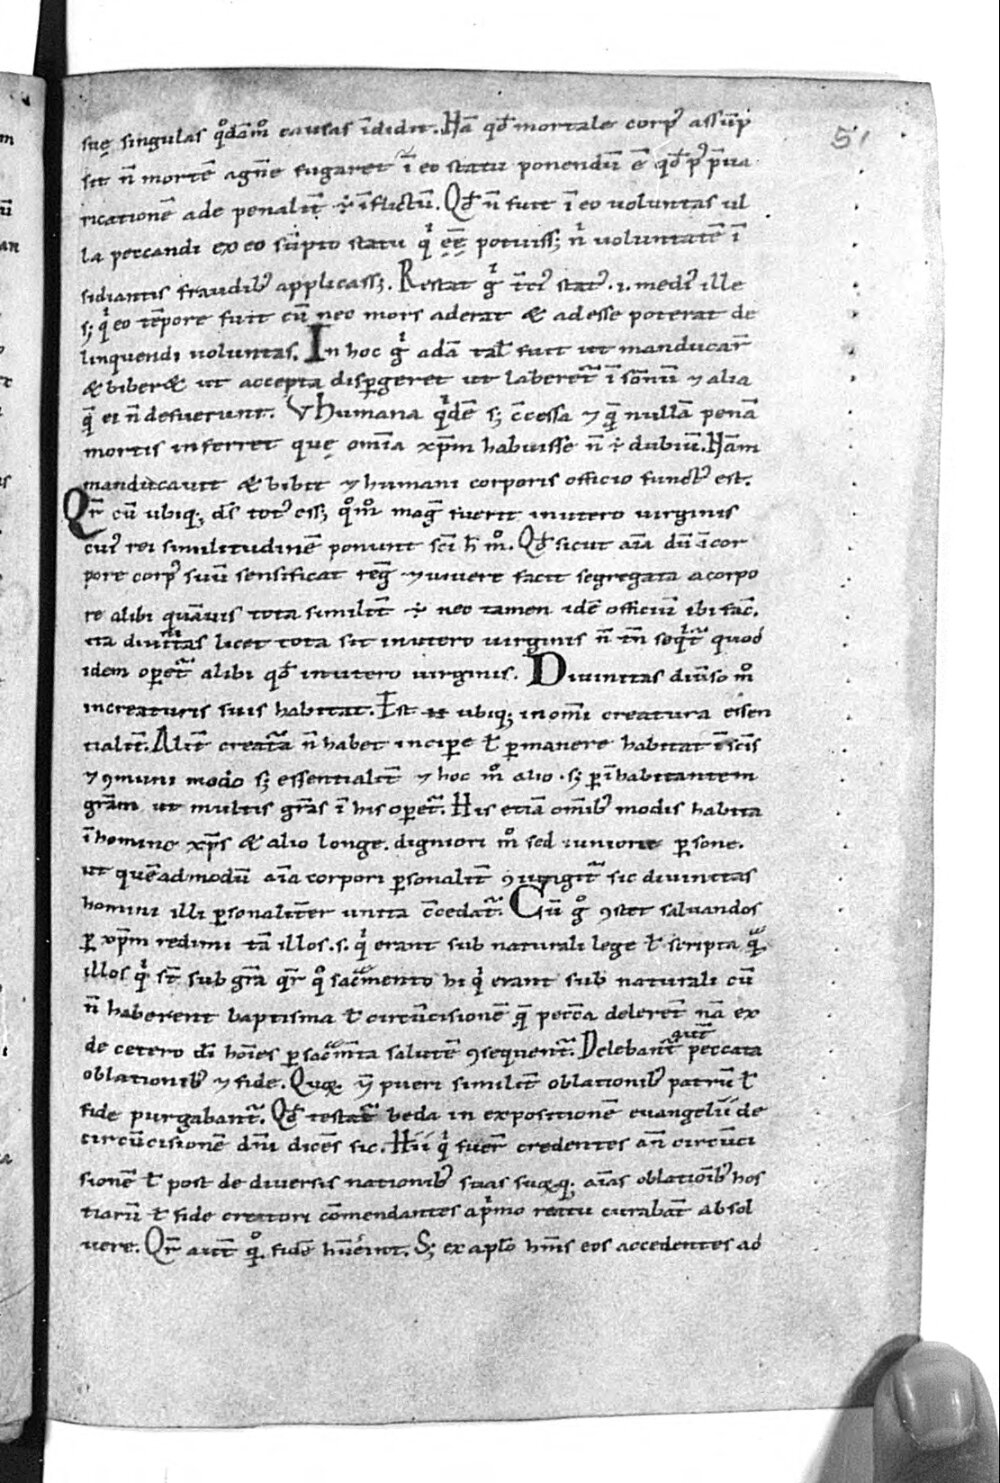 suę singulas q°dām° causas īdidit. Nā qd̄ mortale corp⁹ assūp
sit n̄ mortē agn̄e fugaret ī eo statu ponendū ē qd̄ p⁹ p̄ua
ricationē ade penalit̄ ÷ īflictū. Qd̄ n̄ fuit ī eo voluntas ul
la peccandi ex eo sūpto statu qⁱ ęę̄ potuiss; nⁱ voluntatē ī
sidiantis fraudib⁹ applicass;. Restat gⁱ t̄ci⁹ stat⁹ .i. medi⁹ ille
s; qⁱ eo tēpore fuit cū nec mors aderat & adesse poterat de
linquendi voluntas. In hoc gⁱ adā tal̄ fuit ut manducar̄
& biber& ut accepta disp̄geret ut laberet᷑ ī sōnū ⁊ alia
q̄ ei n̄ defuerunt. V humana qⁱdē s; c̄cessa ⁊ q̄ nullā penā
mortis inferret quę om̄ia xp̄m habuisse n̄ ÷ dubiū. Nā
manducauit & bibit ⁊ humani corporis officio funct⁹ est.
Qr̄ cū ubiq; d̄s tot⁹ ess; q°m° maḡ fuerit inutero uirginis
cui⁹ rei similitudinē ponunt sc̄i h̄ m°. Qd̄ sicut aīa dū ī cor
pore corp⁹ suū sensificat reḡ ⁊ uiuere facit segregata acorpo
re alibi quāuis tota similit̄ ÷ nec tamen idē officiū ibi fac̄.
ita diuītas licet tota sit inutero uirginis n̄ tn̄ seqⁱt᷑ quod
idem op̄et᷑ alibi qd̄ inutero uirginis. Diuinitas diūso m°
increaturis suis habitat. Est ubiq; inom̄i creatura essen
tialit̄. Alit̄ creat̄a n̄ habet incipe t̄ p̄manere habitat ī sc̄is
⁊ ꝯmuni modo s; essentialit̄ ⁊ hoc m° alio. s; p̄ īhabitantem
gr̄am ut multis gr̄as ī his op̄et᷑. His etiā om̄ib⁹ modis habita
ī homine xp̄s & alio longe. digniori m° sed iunione p̄sone.
ut quēadmodū aīa corpori p̄sonalit̄ ꝯiūgit᷑ sic diuinitas
homini illi p̄sonaliter unita c̄cedat᷑. Cū g° ꝯstet saluandos
p̄ xp̄m redimi tā illos .s. qⁱ erant sub naturali lege t̄ scripta q̄
illos qⁱ st̄ sub gr̄a qr̄ q° sac̄mento hi qⁱ erant sub naturali cū
n̄ haberent baptisma t̄ circūcisionē q̄ pecc̄a deleret᷑ nā ex
de cetero dī hoīes p̄ sac̄m̄ta salutē ꝯsequent᷑. Delebant᷑ aut̄ peccata
oblationib⁹ ⁊ fide. Quoꝝ ȳ pueri similit̄ oblationib⁹ patrū t̄
fide purgabant᷑. Qd̄ testat᷑ beda in expositionē euangelii de
circūcisionē dn̄i dicēs sic. Hii qⁱ fuer̄ credentes an̄ circūci
sionē t̄ post de diuersis nationib⁹ suas suoꝝq; aīas oblatiōib⁹ hos
tiarū t̄ fide creatori cōmendantes apⁱmo reatu curabāt absol
uere. Qr̄ aut̄ q° fidē hūerint. S; ex apl̄o hm̄s eos accedentes ad
51